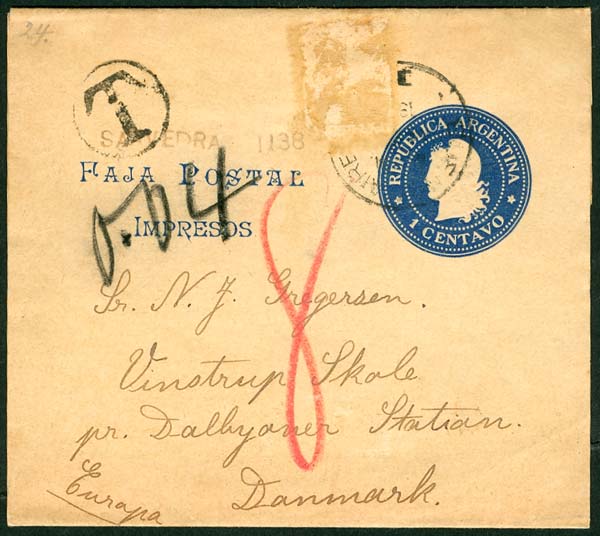 24.
T
SAAVEDRA 1138
FAJA POSTAL
IMPRESOS
0.04
8
REPÚBLICA ARGENTINA
1 CENTAVO
Sr. N. J. Gregersen.
Vinstrup Skole
pr. Dalbyover Station.
Europa
Danmark.